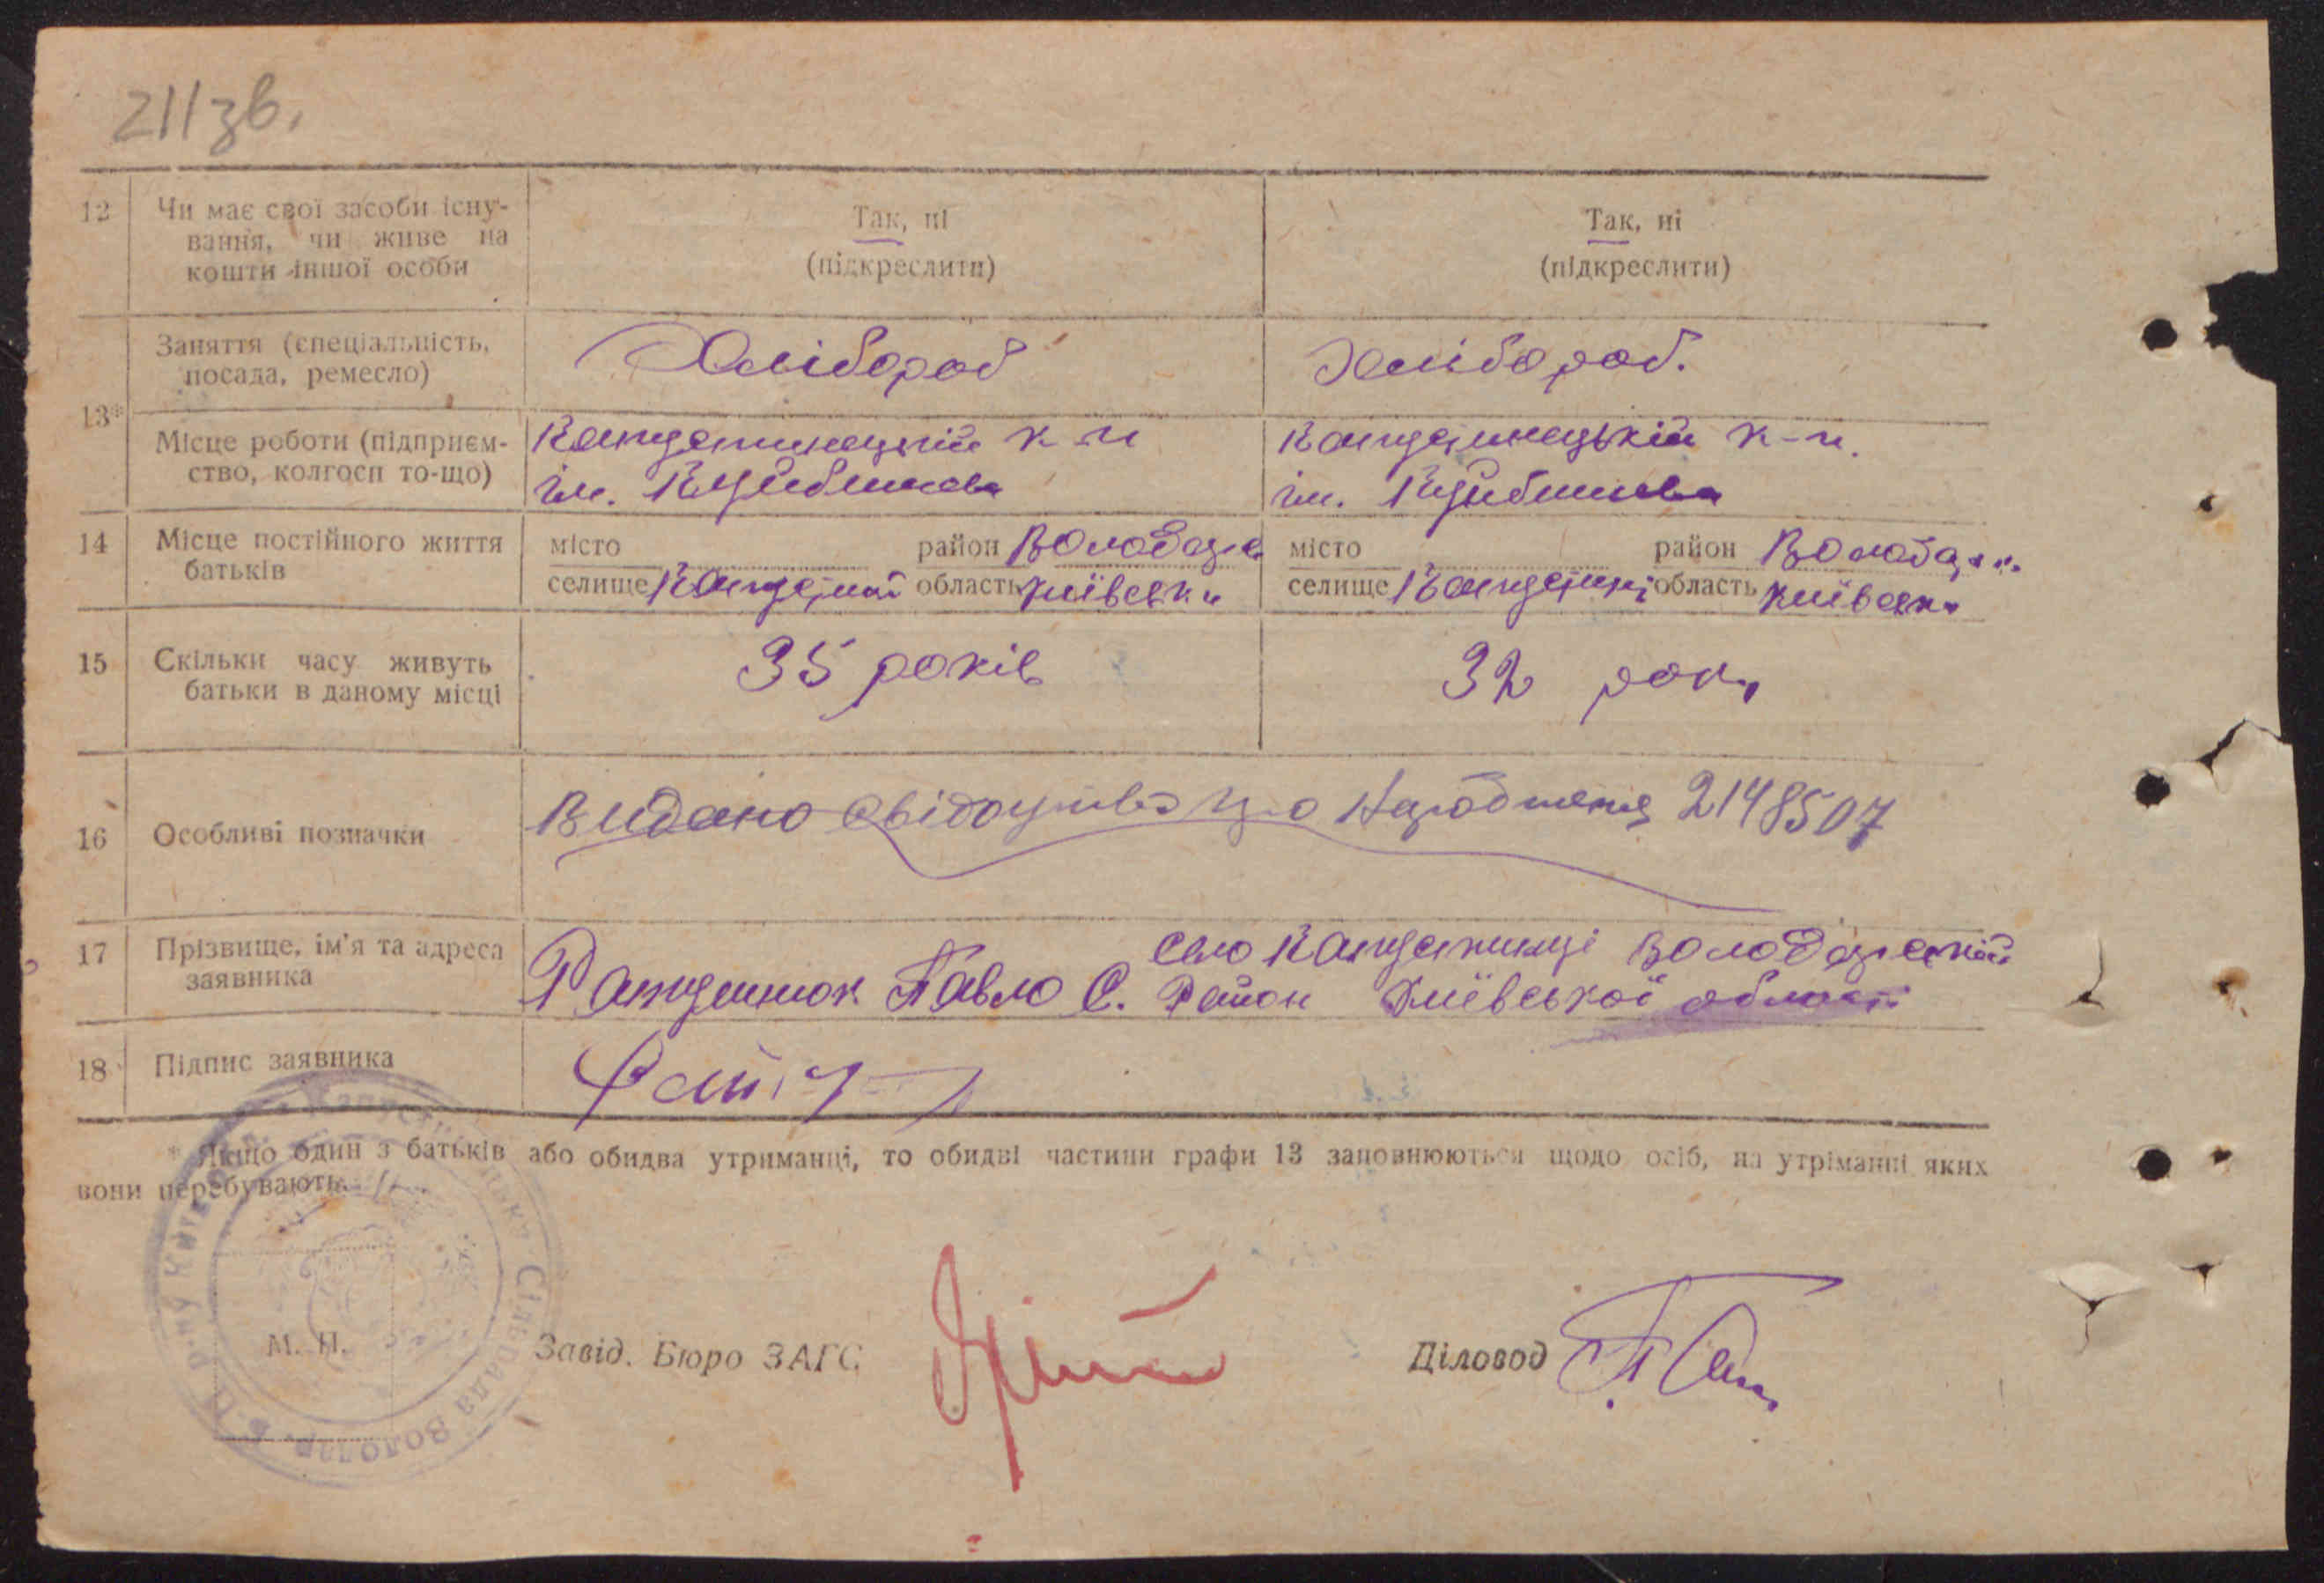 211зв.
12 Чи має свої засоби існу-
вання, чи живе на
кошти іншої особи
Так, ні
(підкреслити)
Так, ні
(підкреслити)
13*
Заняття (спеціальність,
посада, ремесло)
Хлібороб
Хлібороб.
Місце роботи (підприєм-
ство, колгосп то-що)
к-п
ім. Куйбишева
к-п.
ім. Куйбишева
14 Місце постійного життя
батьків
місто район Володарс
селище область Київськ
місто район Володар
селище область Київськ
15 Скільки часу живуть
батьки в даному місці
35 років
32 роки
16 Особливі позначки
Видано свідоцтво про Народження 2148507
17 Прізвище, ім'я та адреса
заявника
село Володарський
Павло С. Район Київської області
18 Підпис заявника
* Якщо один з батьків або обидва утриманці, то обидві частини графи 13 заповнюються щодо осіб, на утріманні яких
вони перебувають.
М. П. Завід. Бюро ЗАГС Діловод